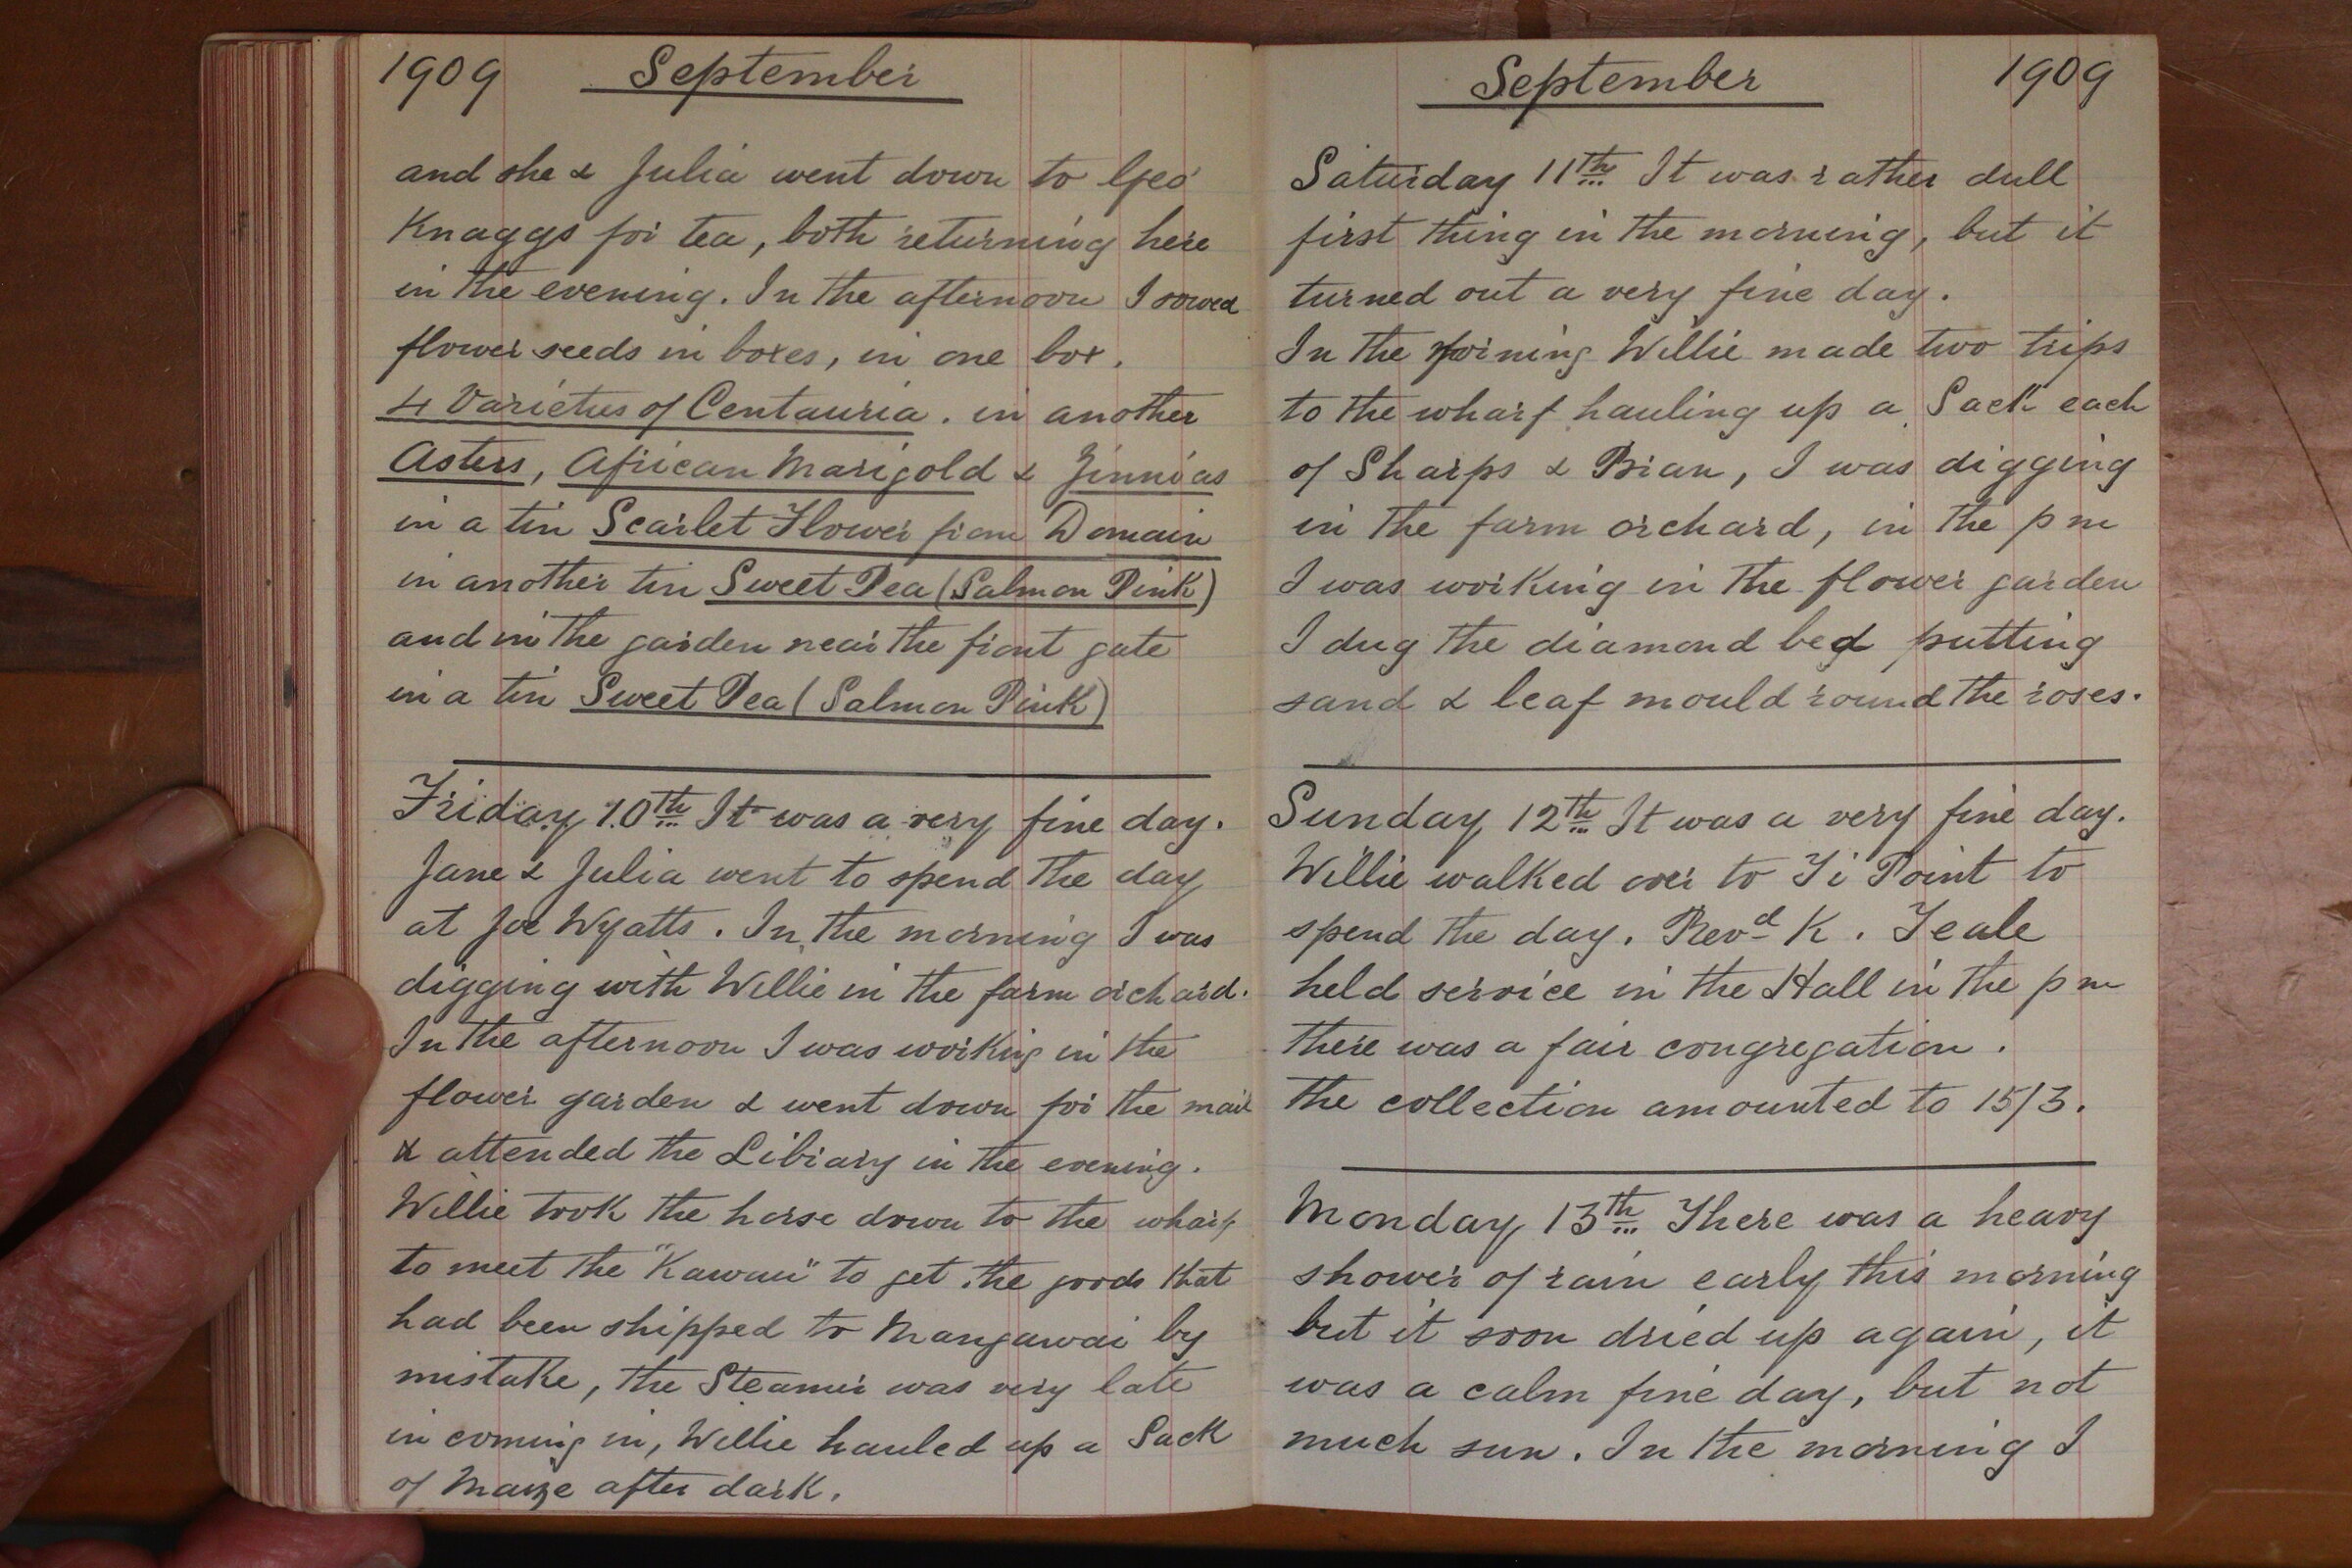 1909 September
and she & Julia went down to Geo
Knaggs for tea, both returning here
in the evening. In the afternoon I sowed
flower seeds in boxes, in one box.
4 Varieties of Centauria. in another
Asters, African Marigold & Zinnias
in a tin Scarlet Flower from Domain
in another tin Sweet Pea (Salmon Pink)
and in the garden near the front gate
in a tin Sweet Pea (Salmon Pink)
Friday 10th It was a very fine day.
Jane & Julia went to spend the day
at Joe Wyatts. In the morning I was
digging with Willie in the farm orchard.
In the afternoon I was working in the
flower garden & went down for the mail
& attended the Library in the evening.
Willie took the horse down to the wharf
to meet the "Kawau" to get the goods that
had been shipped to Mangawai by
mistake, the Steamer was very late
in coming in, Willie hauled up a Sack
of Maize after dark.
September 1909
Saturday 11th It was rather dull
first thing in the morning, but it
turned out a very fine day.
In the morning Willie made two trips
to the wharf hauling up a Sack each
of Sharps & Bran, I was digging
in the farm orchard, in the pm
I was working in the flower garden
I dug the diamond bed putting
sand & leaf mould round the roses.
Sunday 12th It was a very fine day.
Willie walked over to Ti Point to
spend the day. Revd K. Teale
held service in the Hall in the pm
there was a fair congregation.
the collection amounted to 15/3.
Monday 13th There was a heavy
shower of rain early this morning
but it soon dried up again, it
was a calm fine day, but not
much sun. In the morning I